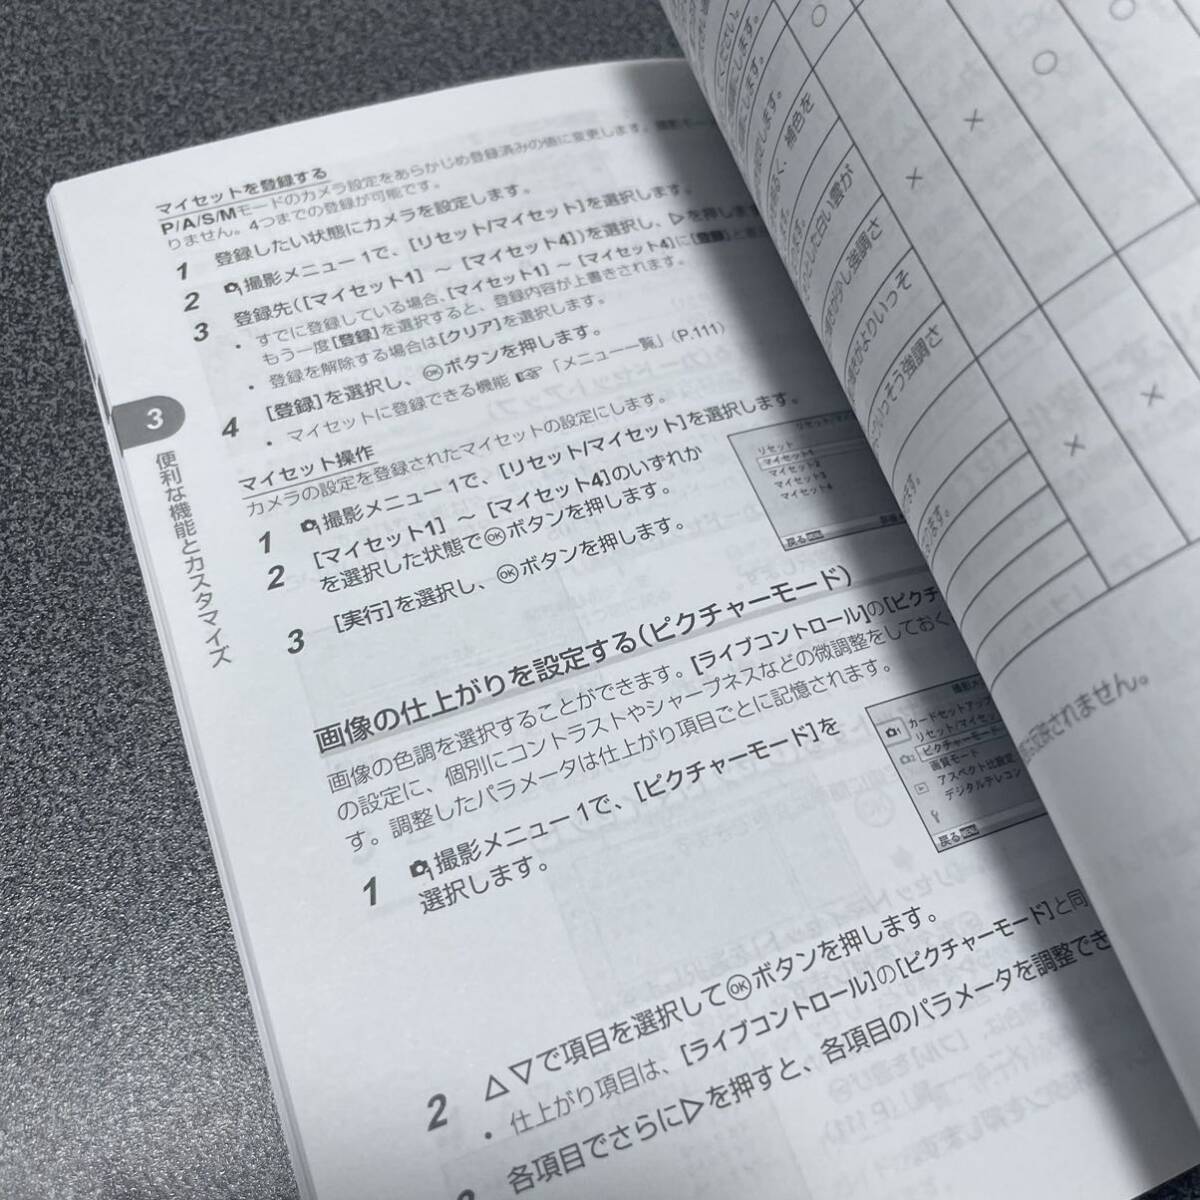 マイセットを登録する
P/A/S/Mモードのカメラ設定をあらかじめ登録済みの値に変更します。撮影モー
りません。4つまでの登録が可能です。
1 登録したい状態にカメラを設定します。
2 撮影メニュー1で、[リセット/マイセット]を選択します。
3 登録先([マイセット1] ～ [マイセット4])を選択し、▷を押します
• すでに登録している場合、[マイセット1] ～ [マイセット4]に[登録]と
もう一度[登録]を選択すると、登録内容が上書きされます。
• 登録を解除する場合は[クリア]を選択します。
4 [登録]を選択し、OKボタンを押します。
• マイセットに登録できる機能 ☞ 「メニュー一覧」(P.111)
マイセット操作
カメラの設定を登録されたマイセットの設定にします。
1 撮影メニュー1で、[リセット/マイセット]を選択します。
2 [マイセット1] ～ [マイセット4]のいずれか
を選択した状態でOKボタンを押します。
3 [実行]を選択し、OKボタンを押します。
リセット
マイセット1
マイセット2
マイセット3
マイセット4
戻る
3
便利な機能とカスタマイズ
画像の仕上がりを設定する(ピクチャーモード)
画像の色調を選択することができます。[ライブコントロール]の[ピクチ
の設定に、個別にコントラストやシャープネスなどの微調整をしておく
す。調整したパラメータは仕上がり項目ごとに記憶されます。
1 撮影メニュー1で、[ピクチャーモード]を
選択します。
カードセットアップ
リセット/マイセッ
ピクチャーモード
画質モード
アスペクト比設定
デジタルテレコン
戻る
2 △▽で項目を選択してOKボタンを押します。
• 仕上がり項目は、[ライブコントロール]の[ピクチャーモード]と同
各項目でさらに▷を押すと、各項目のパラメータを調整でき
ください。
します。
補色を
した白い雲が
少し強調さ
がよりいっそ
いっそう強調さ
ます。
されません。